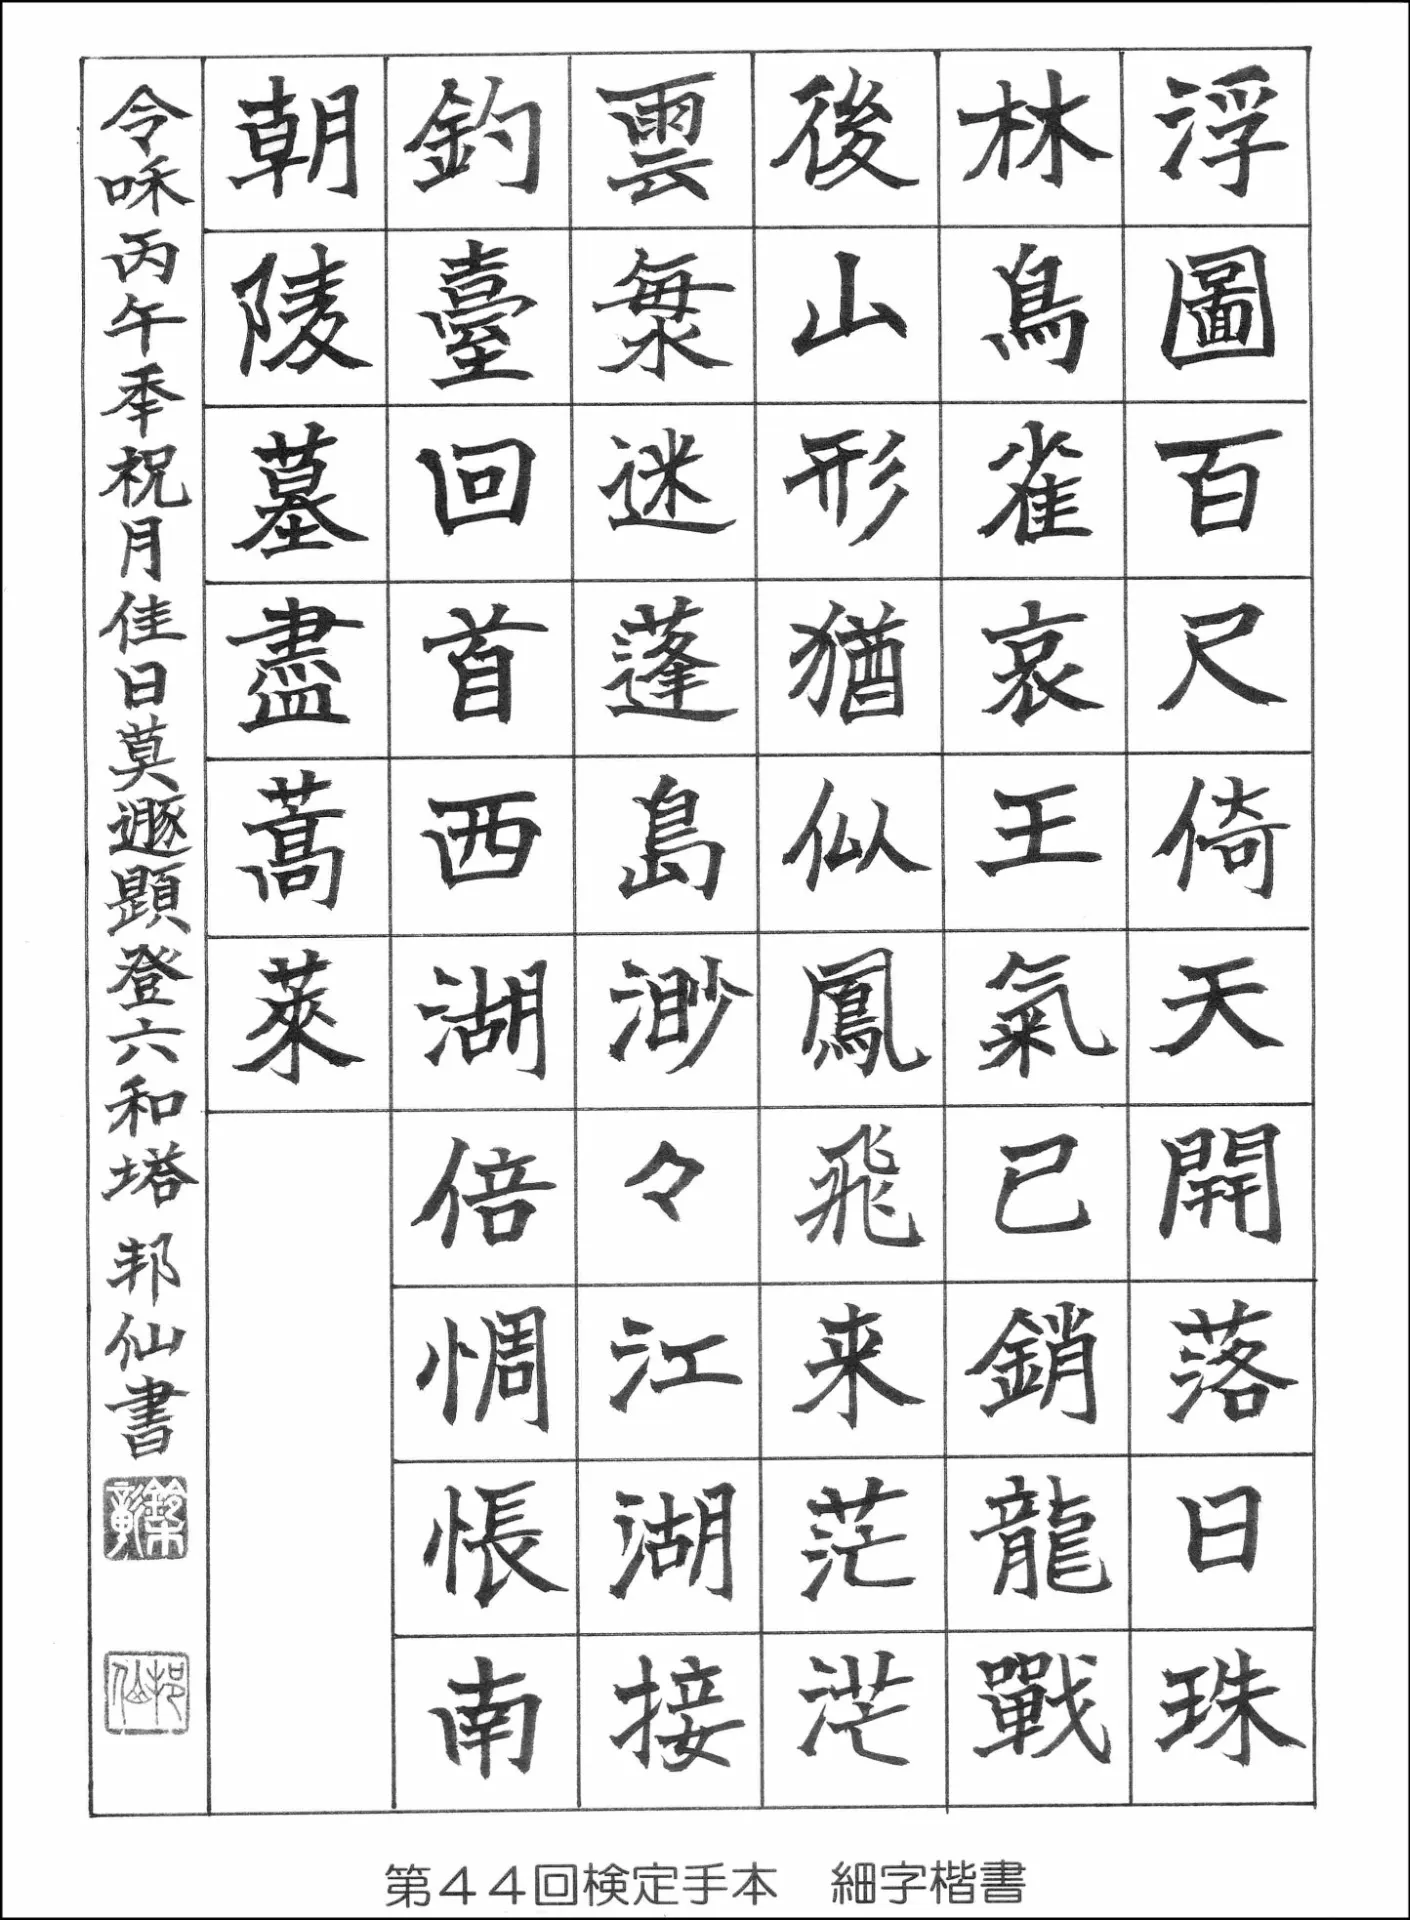 浮圖百尺倚天開落日珠
林鳥雀哀王氣已銷龍戰
後山形猶似鳳飛来茫茫
雲海迷蓬島渺々江湖接
釣臺回首西湖倍惆悵南
朝陵墓盡蒿萊
令咊丙午秊祝月佳日莫遯題登六和塔 邦仙書
邦仙
第４４回検定手本　細字楷書